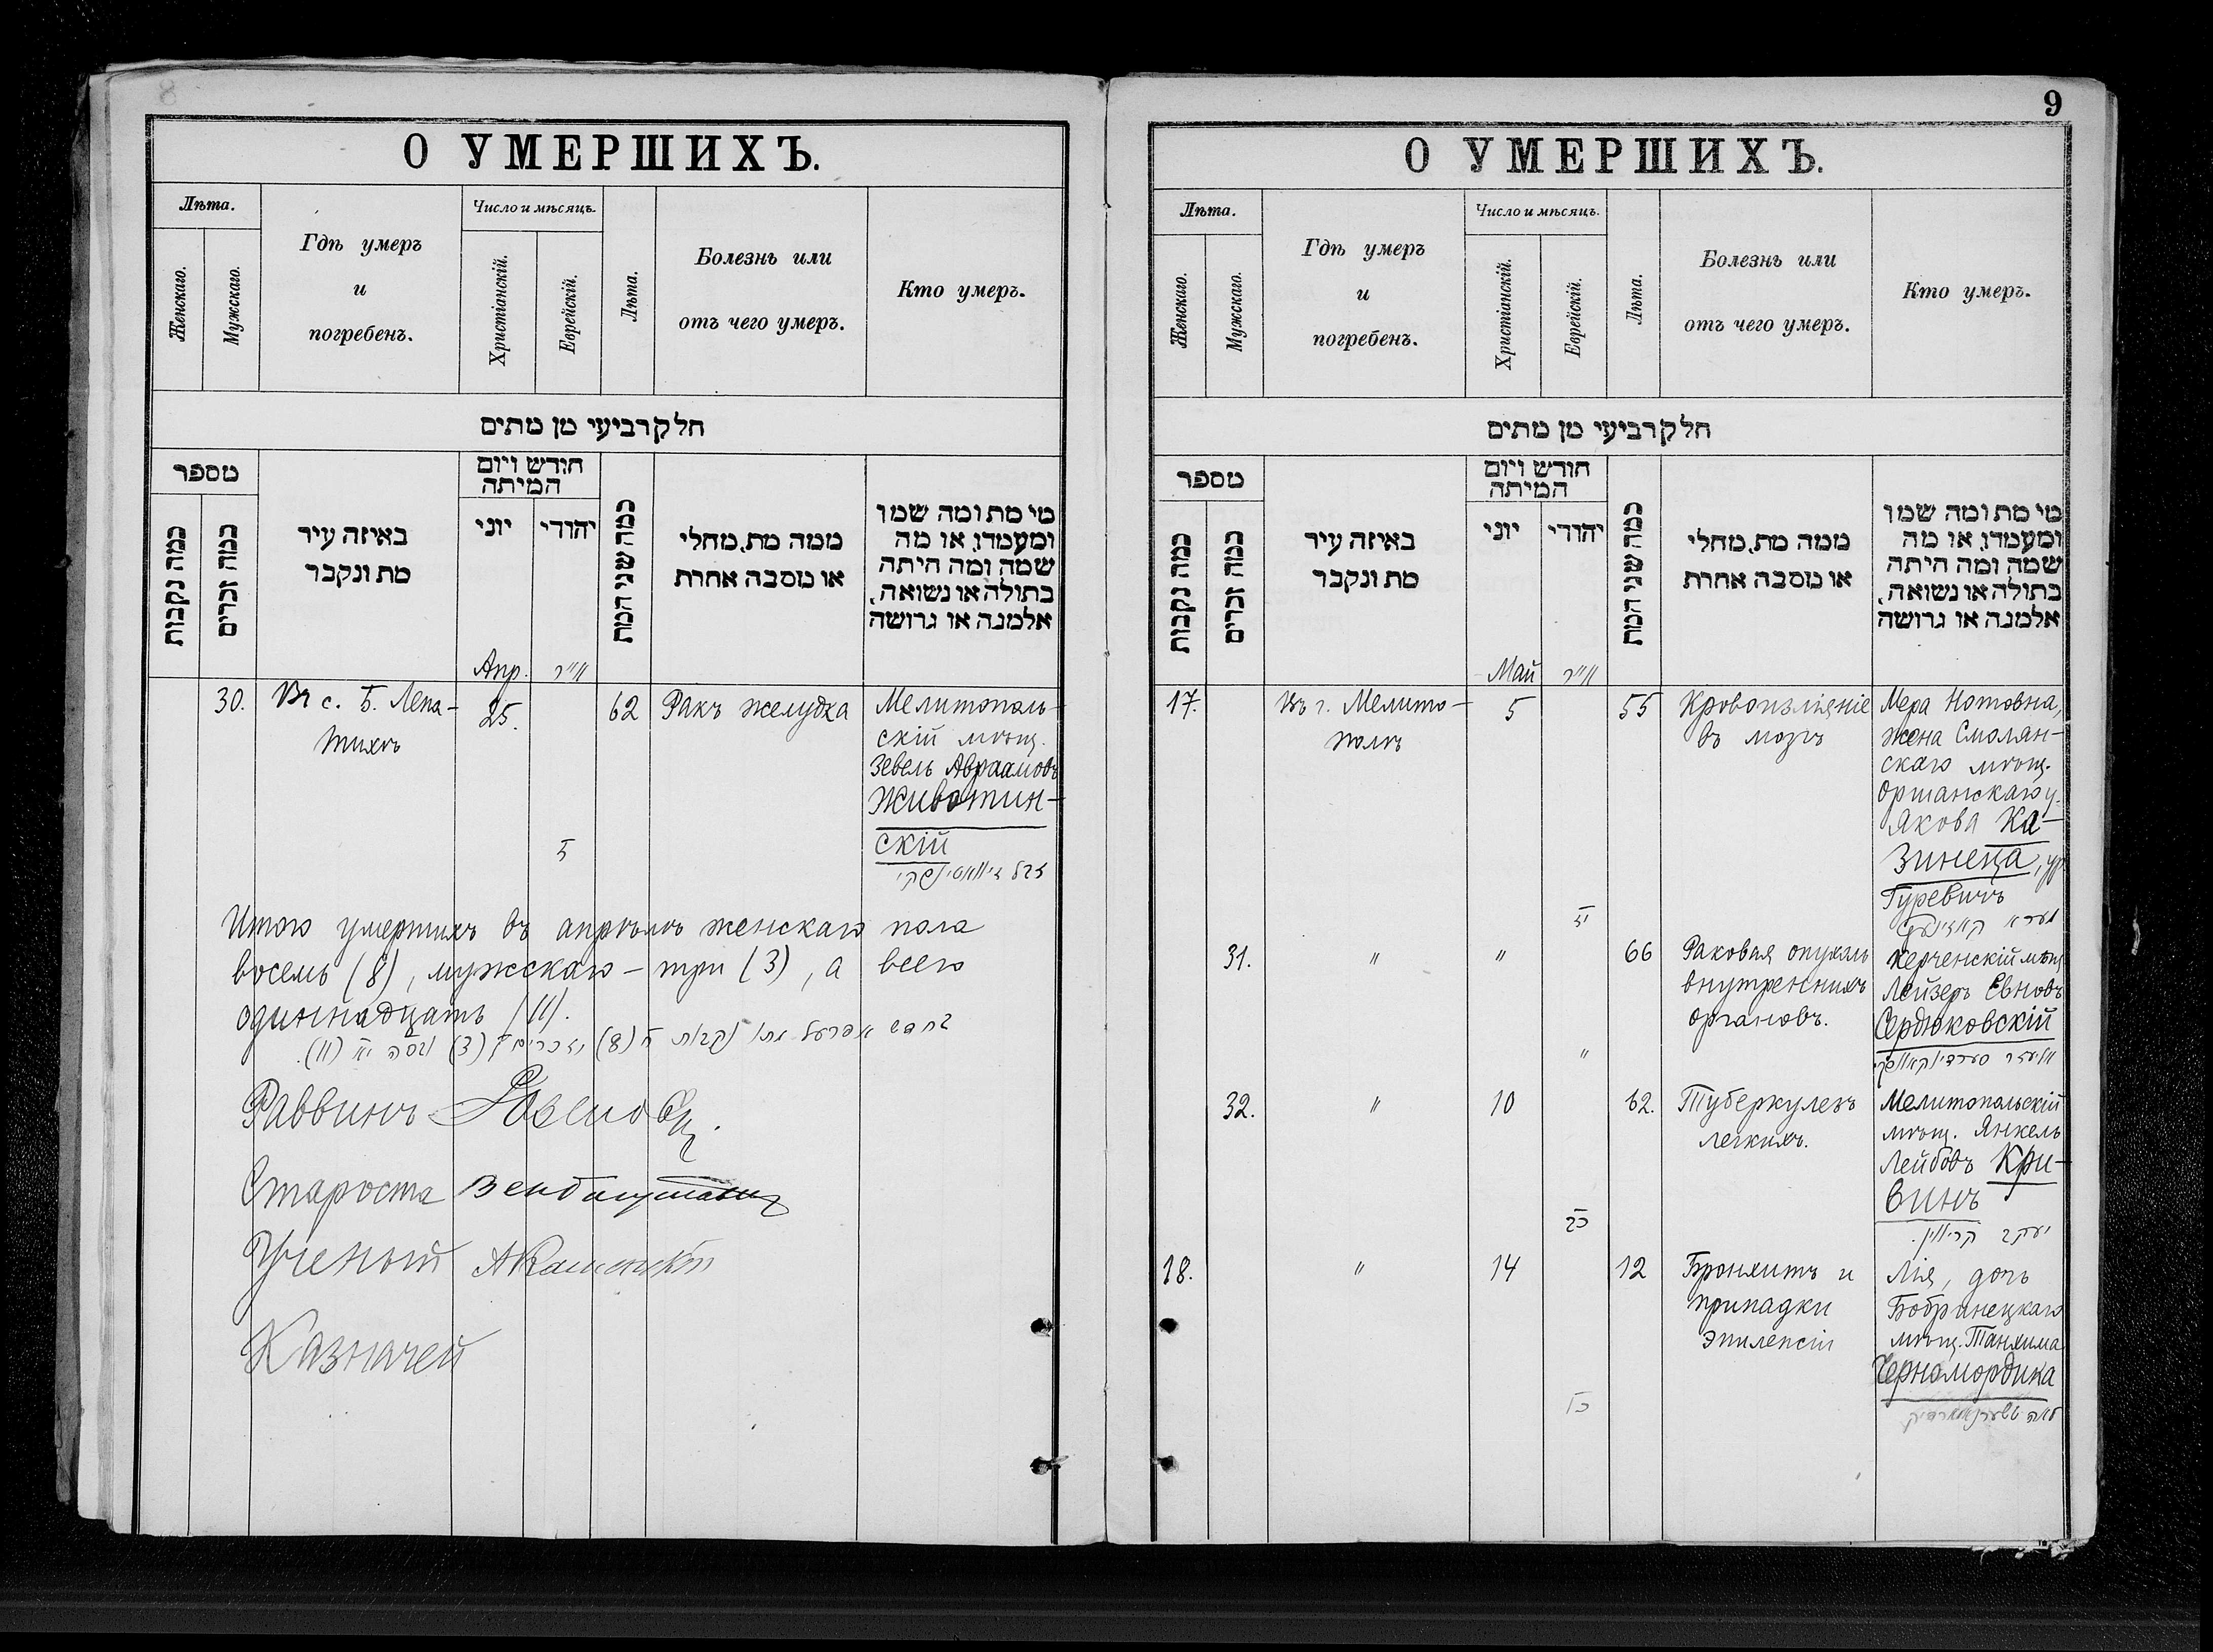 8
О УМЕРШИХЪ.
Лѣта.
Женскаго.
Мужскаго.
Гдѣ умеръ
и
погребенъ.
Число и мѣсяцъ.
Христіанскій.
Еврейскій.
Лѣта.
Болезнь или
отъ чего умеръ.
Кто умеръ.
חלק רביעי מן מתים
מספר
כמה נקבות
כמה זכרים
באיזה עיר
מת ונקבר
חודש ויום
המיתה
יוני
יהודי
כמה שני המת
ממה מת, מחלי
או מסבה אחרת
מי מת ומה שמו
ומעמדו, או מה
שמה ומה היתה
בתולה או נשואה,
אלמנה או גרושה
Апр.
אייר
30.
Въ с. Б. Лепа-
тихѣ
25.
ה
62
Ракъ желудка
Мелитополь-
скій мѣщ.
Зевель Авраамовъ
Животин-
скій
Итого умершихъ въ апрѣлѣ женскаго пола
восемь (8), мужскаго - три (3), а всего
одиннадцать (11).
בחדש אפרעל מתו נקבות ח (8) וזכרים ג (3) ובסה יא (11).
Раввинъ
Староста
Ученый
Казначей
9
О УМЕРШИХЪ.
Лѣта.
Женскаго.
Мужскаго.
Гдѣ умеръ
и
погребенъ.
Число и мѣсяцъ.
Христіанскій.
Еврейскій.
Лѣта.
Болезнь или
отъ чего умеръ.
Кто умеръ.
חלק רביעי מן מתים
מספר
כמה נקבות
כמה זכרים
באיזה עיר
מת ונקבר
חודש ויום
המיתה
יוני
יהודי
כמה שני המת
ממה מת, מחלי
או מסבה אחרת
מי מת ומה שמו
ומעמדו, או מה
שמה ומה היתה
בתולה או נשואה,
אלמנה או גרושה
Май
אייר
17.
Въ г. Мелито-
полѣ
5
55
Кровоизліяніе
въ мозгъ
Мера Нотовна,
жена Смолян-
скаго мѣщ.
Оршанскаго у.
Якова Ка-
зинеца, ур.
Гуревичъ
מערא קאזינעץ
31.
"
"
"
66
Раковая опухоль
внутреннихъ
органовъ.
Керченскій мѣщ.
Лейзеръ Евновъ
Сердюковскій
אליעזר סערדיוקאווסקי
32.
"
10
כב
62.
Туберкулезъ
легкихъ.
Мелитопольскій
мѣщ. Янкель
Лейбовъ Кри-
винъ
יעקב קריווין.
18.
"
14
כו
12
Бронхитъ и
припадки
эпилепсіи
Лія, дочь
Бобринецкаго
мѣщ. Танхима
Черномордика
לאה טשערנאמארדיק